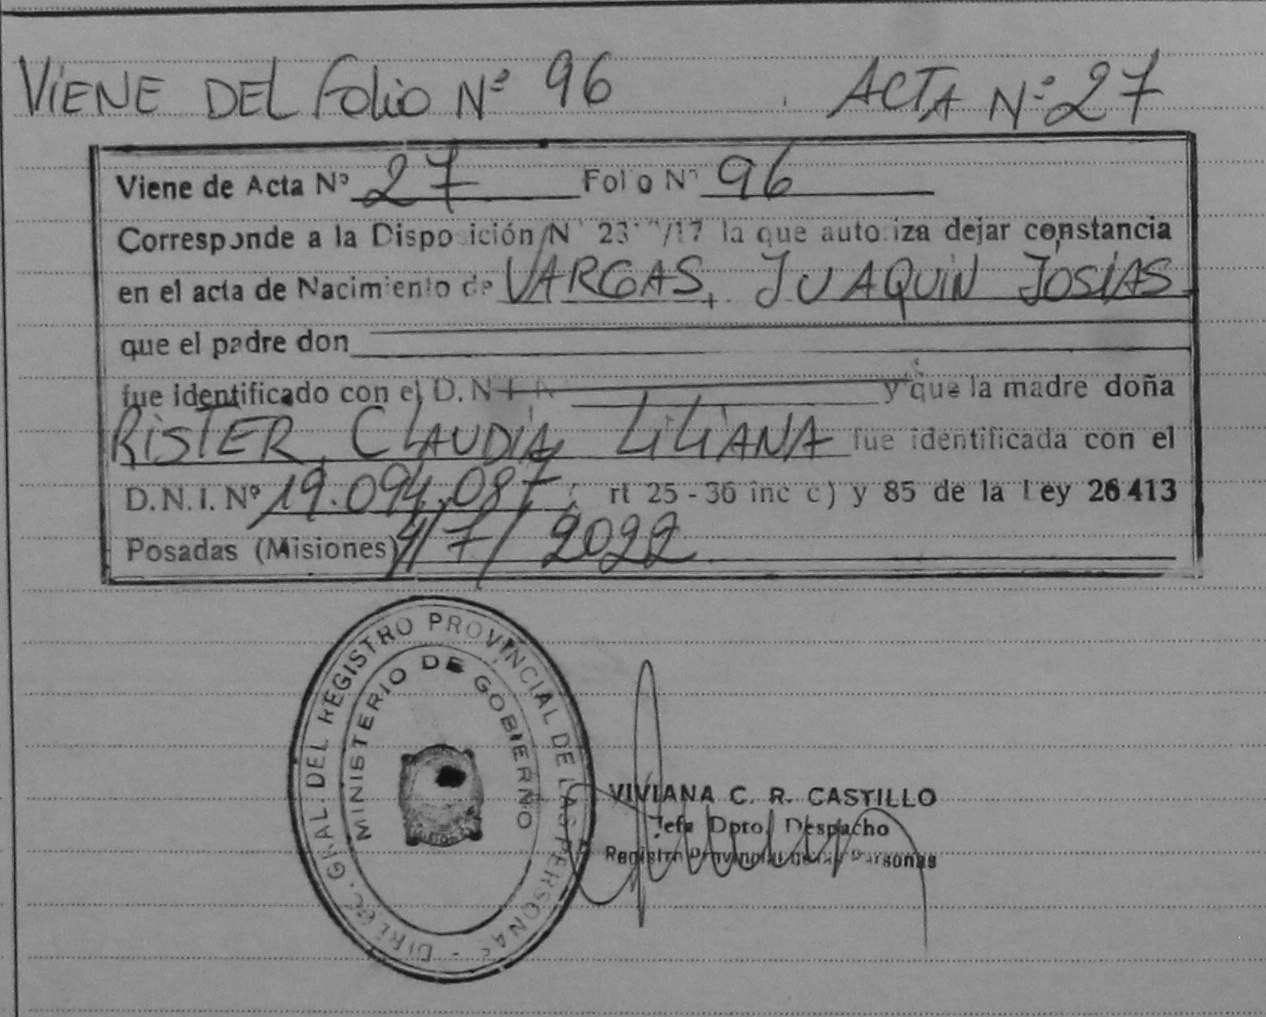 VIENE DEL Folio Nº 96 ACTA Nº 27
Viene de Acta Nº 27 Folio Nº 96
Corresponde a la Disposición Nº /17 la que autoriza dejar constancia
en el acta de Nacimiento de VARGAS, JUAQUIN JOSIAS
que el padre don
fue identificado con el D.N.I. Nº y que la madre doña
RISTER, CLAUDIA LILIANA fue identificada con el
D.N.I. Nº 19.094.087 rt 25 - 36 inc c) y 85 de la Ley 26413
Posadas (Misiones) 4/7/2022
DIREC. GRAL. DEL REGISTRO PROVINCIAL DE LAS PERSONAS -
MINISTERIO DE GOBIERNO
VIVIANA C. R. CASTILLO
Jefe Dpto. Despacho
Registro Provincial de las Personas